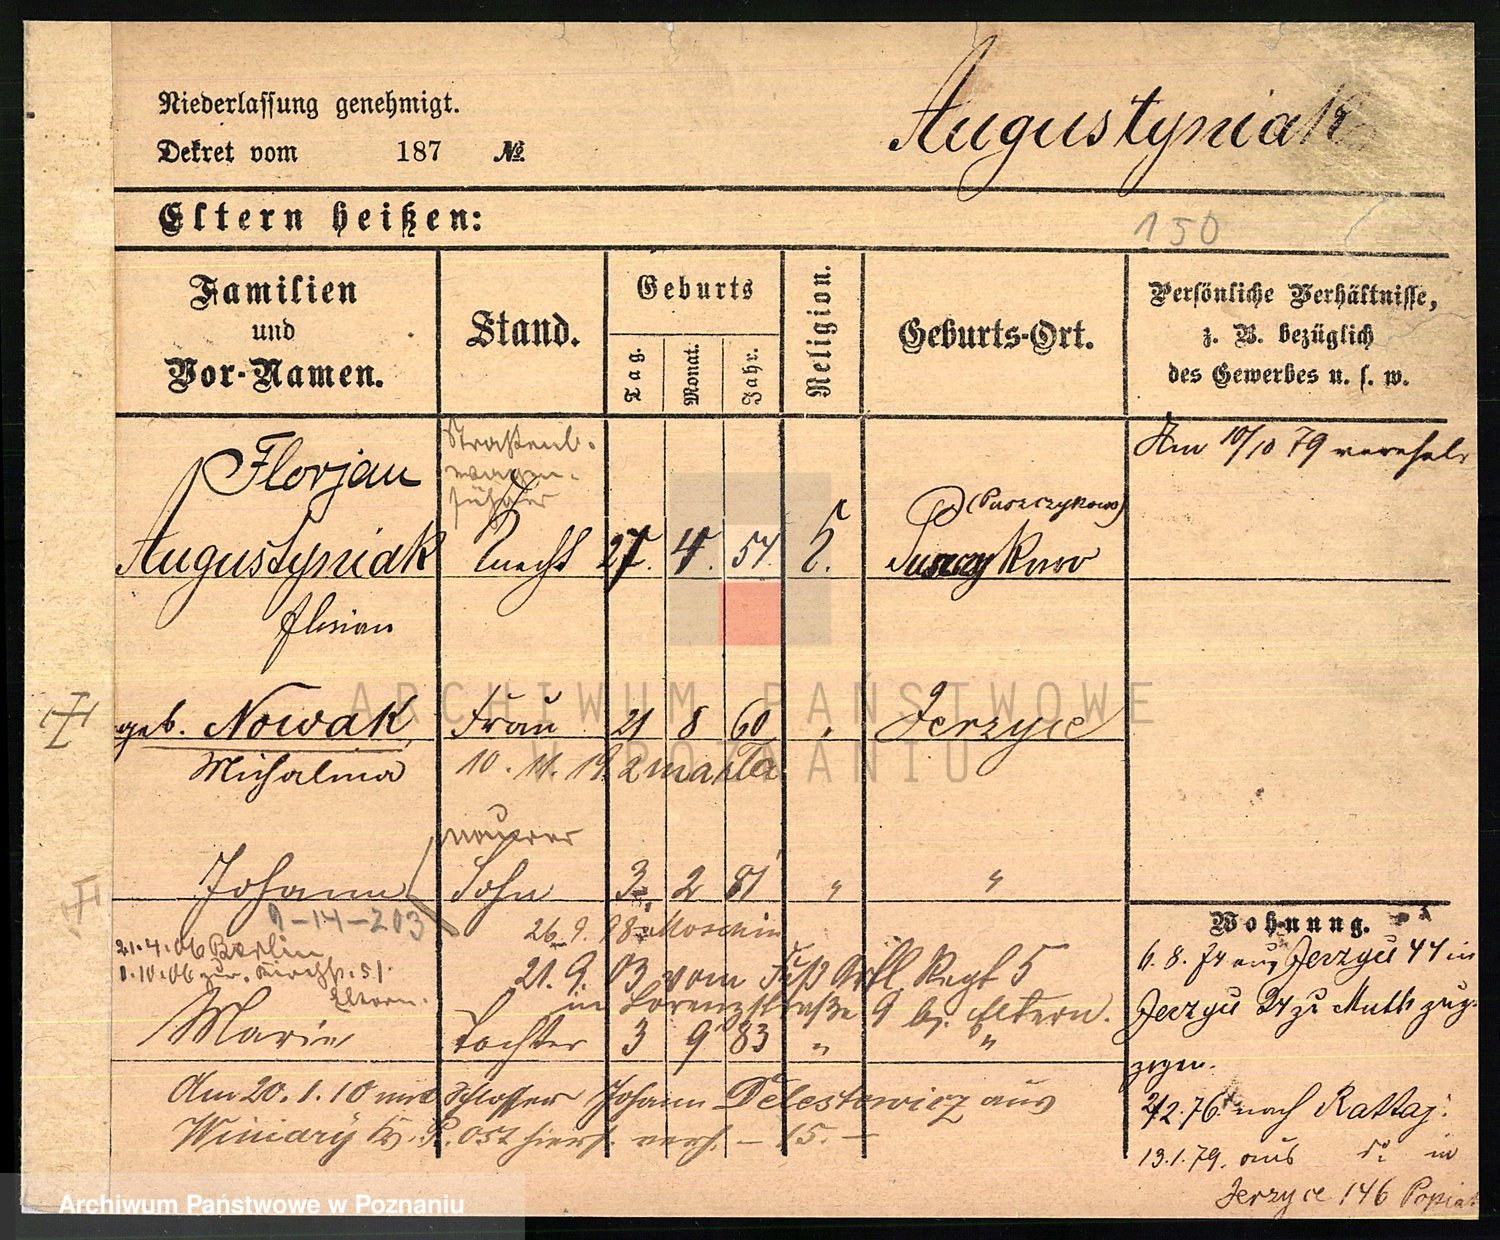 Niederlassung genehmigt.
Dekret vom 187 №
Augustyniak
Eltern heißen:
150
Familien und Vor-Namen.
Stand.
Geburts
Tag.
Monat.
Jahr.
Religion.
Geburts-Ort.
Persönliche Verhältnisse,
z. B. bezüglich
des Gewerbes u. s. w.
Straßenb.
wagen-
führer
Am 10/10 79 verehel.
Florjan
(Puszczykowo)
Augustyniak Knecht 27. 4. 54.
Florian
geb. Nowak Frau 21 8 60 Jerzyce
Michalina 10. 11. 19.
maurer
Johann Sohn 3. 2 81 " "
9-14-203
26. 9. 98 Moschin
21.4.06 Berlin
21. 9. 03 vom Fuß Artl. Regt 5
1.10.06 zur. Kirchstr. 51.
Eltern.
in Lorenzstraße 9 b. Eltern.
Marie Tochter 3 9 83 " "
Am 20.1.10 mit Schlosser Johann Delestowicz aus
Winiary Kr. P. Ost hiers. verh. – 15. –
Wohnung.
aus Jerzyce 44 in
Jerzyce zu zug.
gezogen.
2/2.76. nach Rattaj:
13.1.79. aus in
Jerzyce 146
ARCHIWUM PAŃSTWOWE
W POZNANIU
Archiwum Państwowe w Poznaniu